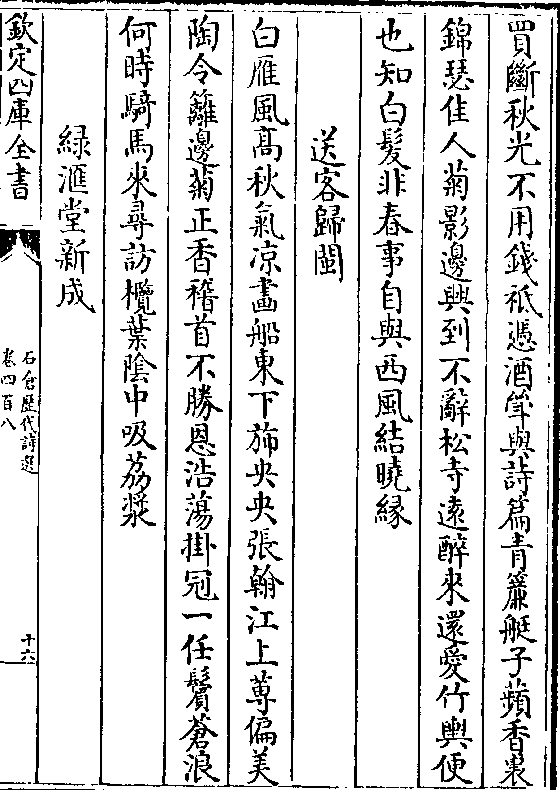 買斷秋光不用錢祗憑酒筆與詩篇青簾艇子蘋香裏
錦瑟佳人菊影邊興到不辭松寺遠醉來還愛竹輿便
也知白髮非春事自與西風結曉緣
送客歸閩
白雁風髙秋氣凉畫船東下斾央央張翰江上蓴偏美
陶令籬邊菊正香稽首不勝恩浩蕩掛冠一任鬢蒼浪
何時騎馬來尋訪欖葉陰中吸荔漿
緑滙堂新成
欽定四庫全書
石倉歴代詩選
卷四百八
十六